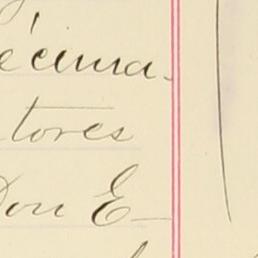 écima.
tores
Don E-